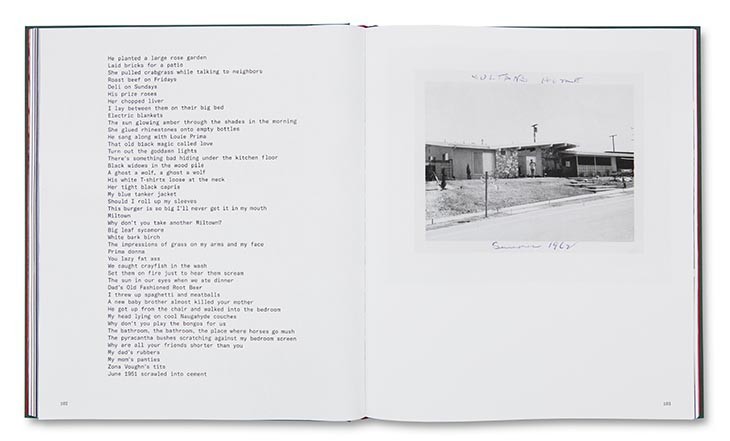 He planted a large rose garden
Laid bricks for a patio
She pulled crabgrass while talking to neighbors
Roast beef on Fridays
Deli on Sundays
His prize roses
Her chopped liver
I lay between them on their big bed
Electric blankets
The sun glowing amber through the shades in the morning
She glued rhinestones onto empty bottles
He sang along with Louie Prima
That old black magic called love
Turn out the goddamn lights
There's something bad hiding under the kitchen floor
Black widows in the wood pile
A ghost a wolf, a ghost a wolf
His white T-shirts loose at the neck
Her tight black capris
My blue tanker jacket
Should I roll up my sleeves
This burger is so big I'll never get it in my mouth
Miltown
Why don't you take another Miltown?
Big leaf sycamore
White bark birch
The impressions of grass on my arms and my face
Prima donna
You lazy fat ass
We caught crayfish in the wash
Set them on fire just to hear them scream
The sun in our eyes when we ate dinner
Dad's Old Fashioned Root Beer
I threw up spaghetti and meatballs
A new baby brother almost killed your mother
He got up from the chair and walked into the bedroom
My head lying on cool Naugahyde couches
Why don't you play the bongos for us
The bathroom, the bathroom, the place where horses go mush
The pyracantha bushes scratching against my bedroom screen
Why are all your friends shorter than you
My dad's rubbers
My mom's panties
Zona Voughn's tits
June 1951 scrawled into cement
102
Summer 1962
103